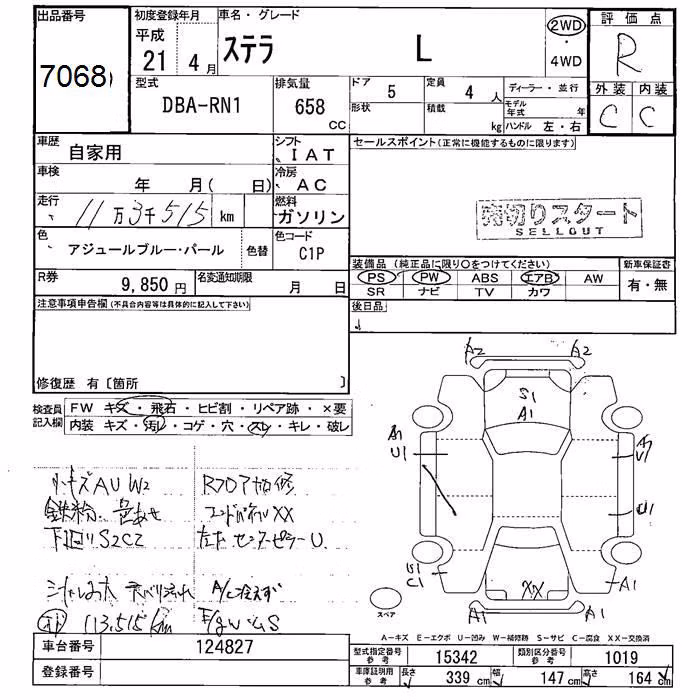 出品番号
7068
初度登録年月
平成
21年 4月
車名・グレード
ステラ L
2WD
・
4WD
評価点
R
外装 内装
C C
型式
DBA-RN1
排気量
658
CC
ドア 5
定員 4人
形状
積載 kg
ディーラー・並行
モデル年式 年
ハンドル 左・右
車歴
自家用
シフト
IAT
車検
年 月( 日)
冷房
AC
走行
11万3千515 km
燃料
ガソリン
色
アジュールブルー・パール
色替
色コード
C1P
R券
9,850円
名変通知期限
月 日
セールスポイント(正常に機能するものに限ります)
売切りスタート
SELLOUT
装備品 (純正品に限り○をつけてください)
PS PW ABS エアB AW
SR ナビ TV カワ
新車保証書
有・無
後日品
注意事項申告欄(不具合内容等は具体的に記入して下さい)
修復歴 有〔箇所 〕
検査員
記入欄
FW キズ・飛石・ヒビ割・リペア跡・×要
内装 キズ・汚レ・コゲ・穴・スレ・キレ・破レ
小キズAU W2
鉄粉
下廻りS2C2
A/C冷えず
113,515km
XX
センターピラーU
A2 A2
S1
A1
A1
U1
A1
U1
U1
U1
C1
XX
A1
A1 A1
スペア
A-キズ E-エクボ U-凹み W-補修跡 S-サビ C-腐食 XX-交換済
車台番号
124827
登録番号
型式指定番号
参考
15342
類別区分番号
参考
1019
車庫証明用
参考
長さ 339 cm
幅 147 cm
高さ 164 cm